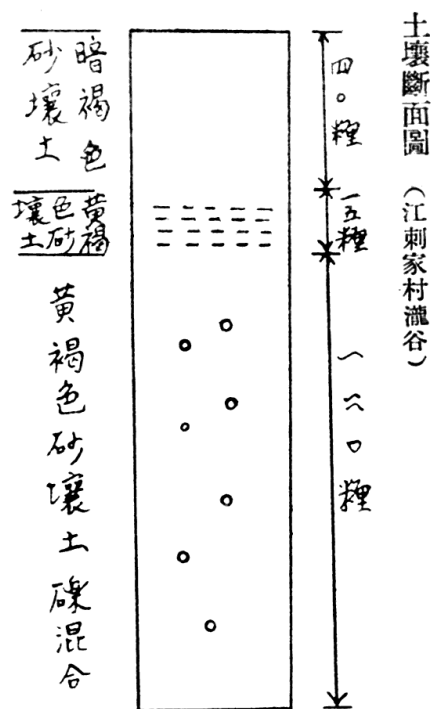 土壤斷面圖 (江刺家村瀧谷)
四〇糎
一五糎
〇糎
暗褐色
砂壤土
黄褐
色砂
壤土
黄褐色砂壤土礫混合